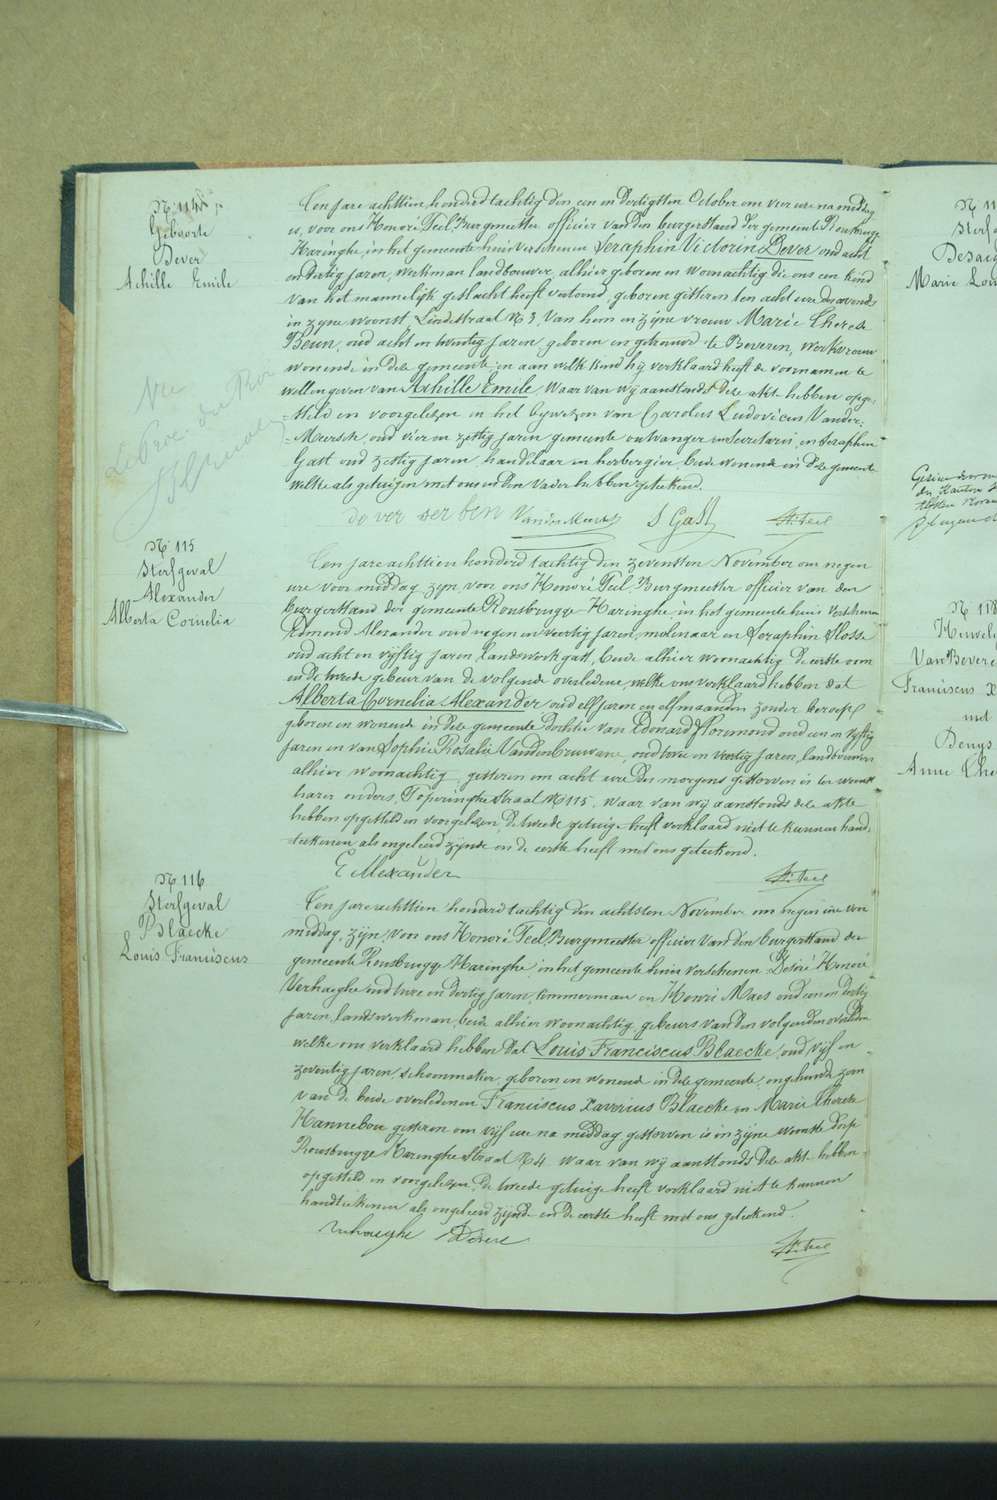 N 114
Geboorte
Dever
Achille Emile
Ten jare achttien honderd tachtig den een en dertigsten October om vier ure na middag
is, voor ons Honoré Teel Burgmeester officier van den burgerstand der gemeente Rousbrugge
Haringhe, in het gemeente huis verschenen Seraphin Victorin Dever oud acht
en dertig jaren, werkman landbouwer, alhier geboren en woonachtig die ons een kind
van het mannelijk geslacht heeft vertoond, geboren gisteren ten acht ure des avonds
in zyne woonst, Lindestraat N 3, van hem en zyne vrouw Marie Therese
Beun, oud acht en twintig jaren geboren en getrouwd te Beveren, werkvrouw
wonende in deze gemeente, en aan welk kind hij verklaard heeft de voornamen te
willen geven van Achille Emile. Waar van wij aanstonds deze akte hebben opge-
steld en voorgelezen in het bywezen van Carolus Ludovicus Vander-
Meersch oud vier en zestig jaren gemeente ontvanger en Secretaris, en Seraphin
Gast oud zestig jaren, handelaar en herbergier, beide wonende in deze gemeente
welke als getuigen met ons en den vader hebben geteekend.
de ver ser ben VanderMeersch S Gast H. Teel
Vu
N 115
Sterfgeval
Alexander
Alberta Cornelia
Ten jare achttien honderd tachtig den zevensten November om negen
ure voor middag zyn, voor ons Honoré Teel, Burgmeester officier van den
burgerstand der gemeente Rousbrugge-Haringhe, in het gemeente huis verschenen
Edmond Alexander oud negen en veertig jaren, molenaar en Seraphin Slosse
oud acht en vyftig jaren landswerkgast, beide alhier woonachtig de eerste oom
en de tweede gebeur van de volgende overledene, welke ons verklaard hebben dat
Alberta Cornelia Alexander oud elf jaren en elf maanden zonder beroep
geboren en wonende in deze gemeente dochter van Edouard Florimond oud een en vyftig
jaren en van Sophie Rosalie Vandenbruwane, oud twee en veertig jaren, landbouwers
alhier woonachtig, gisteren om acht ure des morgens gestorven is ter woonst
harer ouders, Poperinghe straat N 115. waar van wij aanstonds deze akte
hebben opgesteld en voorgelezen, de tweede getuige heeft verklaard niet te kunnen hand-
teekenen als ongeleerd zynde en de eerste heeft met ons geteekend.
E Alexander H. Teel
N 116
Sterfgeval
Blaecke
Louis Franciscus
Ten jare achttien honderd tachtig den achtsten November om negen ure voor
middag, zijn, voor ons Honoré Teel, Burgmeester officier van den burgerstand der
gemeente Rousbrugge Haringhe in het gemeente huis verschenen Desiré Honoré
Verhaeghe oud twee en dertig jaren, timmerman en Henri Maes oud een en dertig
jaren, landswerkman, beide alhier woonachtig, gebeurs van den volgenden overleden
welke ons verklaard hebben dat Louis Franciscus Blaecke, oud vijf en
zeventig jaren, schoenmaker, geboren en wonende in deze gemeente, ongehuwde zoon
van de beide overledenen Franciscus Xaverius Blaecke en Marie Therese
Hannebou gisteren om vijf ure na middag gestorven is in zijne woonste dorp
Rousbrugge Haringhe straat N 4. waar van wij aanstonds deze akte hebben
opgesteld en voorgelezen, de tweede getuige heeft verklaard niet te kunnen
handteekenen als ongeleerd zijnde en de eerste heeft met ons geteekend.
Verhaeghe Desiré H. Teel
Marie Lou
N 118
Huwelij
Van Bevere
Franciscus X
met
Denys
Anne The